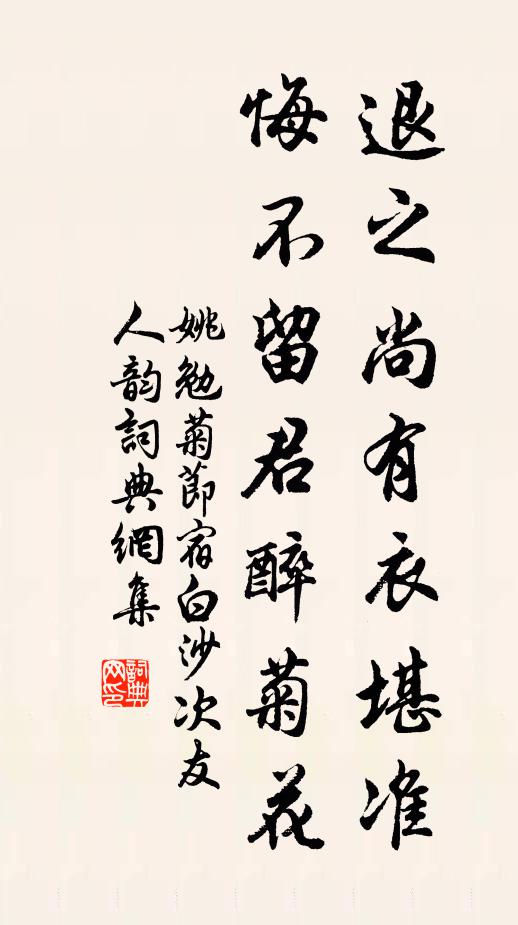 退之尚有衣堪准
悔不留君醉菊花
姚勉菊節宿白沙次友
人韵詞典網集
詞典
网印